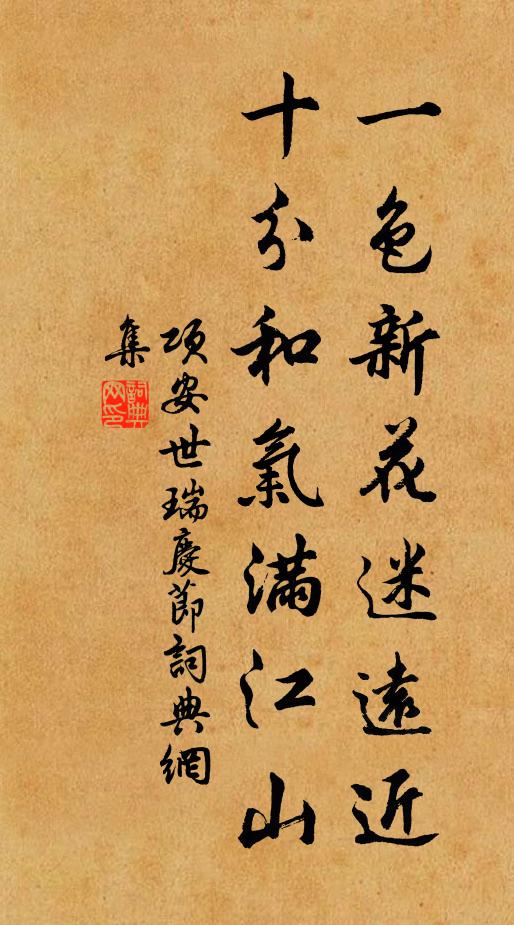 一色新花迷遠近
十分和氣滿江山
項安世瑞慶節詞典網
集
詞典
网印